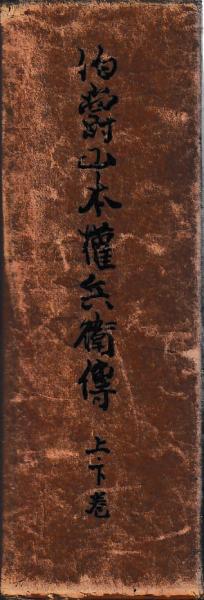 伯爵山本權兵衛傳
上・下巻